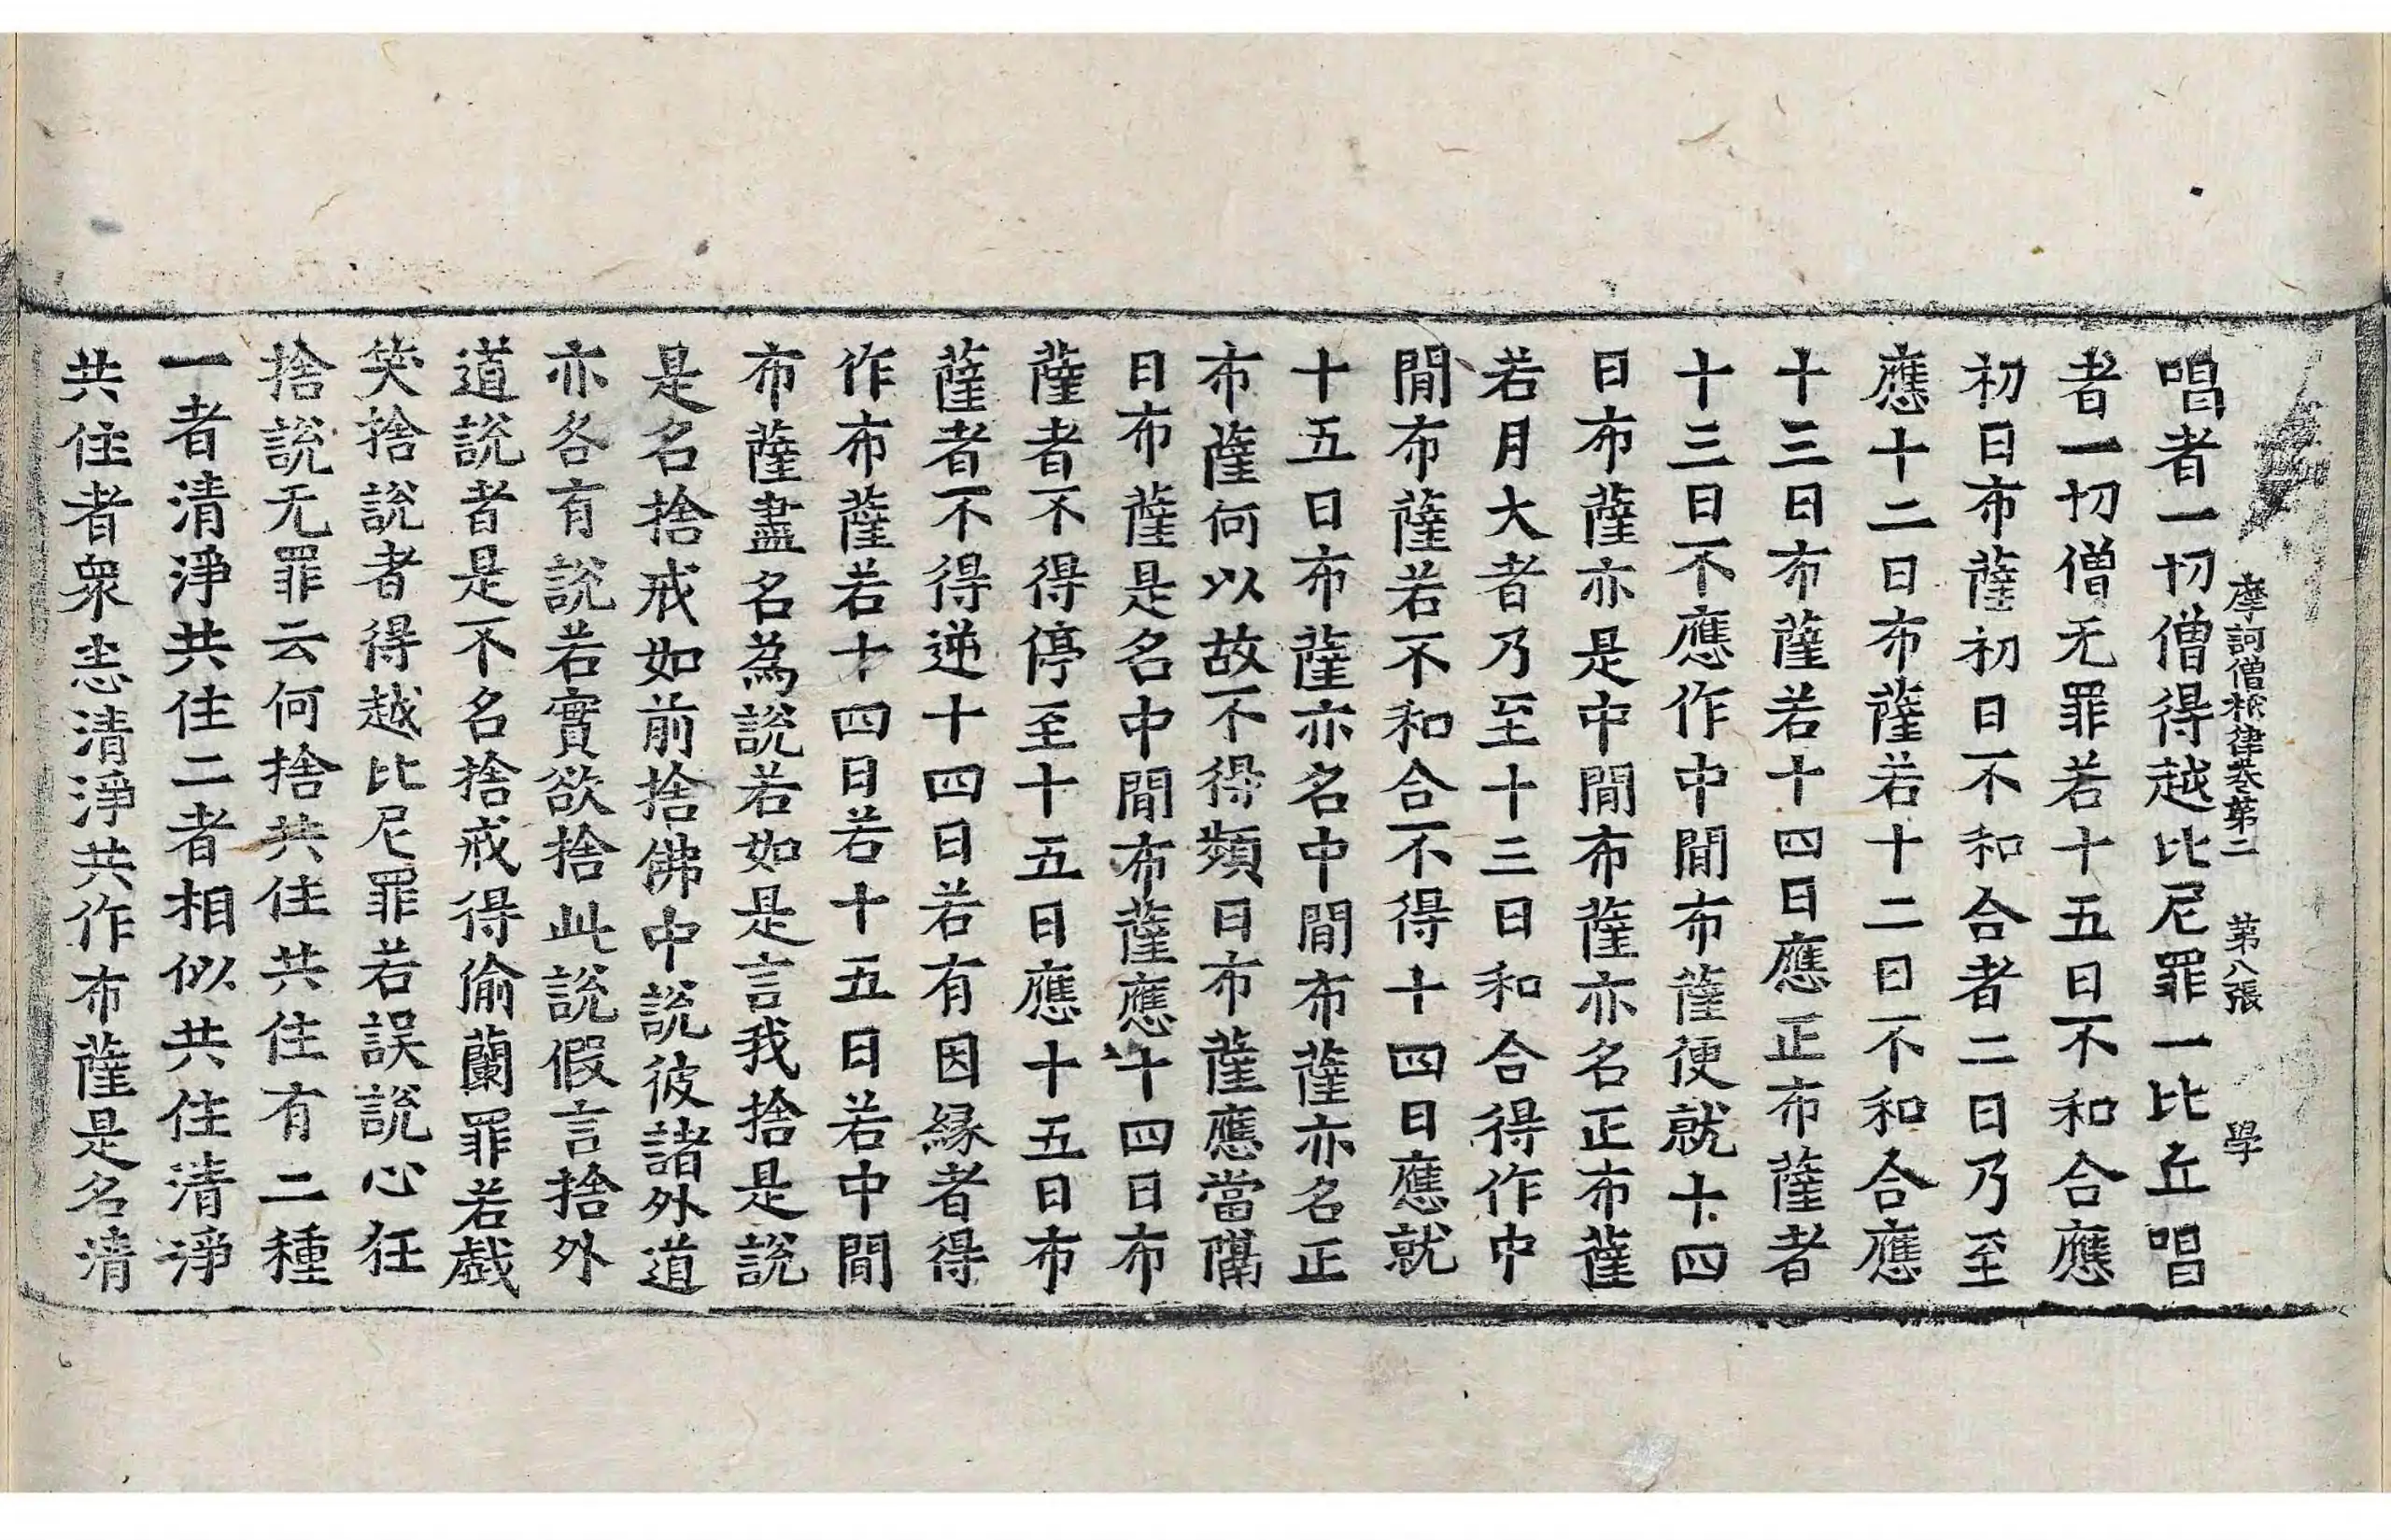 摩訶僧祇律卷第二 第八張 學
唱者一切僧得越比尼罪一比丘唱
者一切僧无罪若十五日不和合應
初日布薩初日不和合者二日乃至
應十二日布薩若十二日不和合應
十三日布薩若十四日應正布薩者
十三日不應作中閒布薩便就十四
日布薩亦是中閒布薩亦名正布薩
若月大者乃至十三日和合得作中
閒布薩若不和合不得十四日應就
十五日布薩亦名中閒布薩亦名正
布薩何以故不得頻日布薩應當隔
日布薩是名中閒布薩應十四日布
薩者不得停至十五日應十五日布
薩者不得逆十四日若有因緣者得
作布薩若十四日若十五日若中閒
布薩盡名為說若如是言我捨是說
是名捨戒如前捨佛中說彼諸外道
亦各有說若實欲捨此說假言捨外
道說者是不名捨戒得偷蘭罪若戱
笑捨說者得越比尼罪若誤說心狂
捨說无罪云何捨共住共住有二種
一者清淨共住二者相似共住清淨
共住者眾恚清淨共作布薩是名清